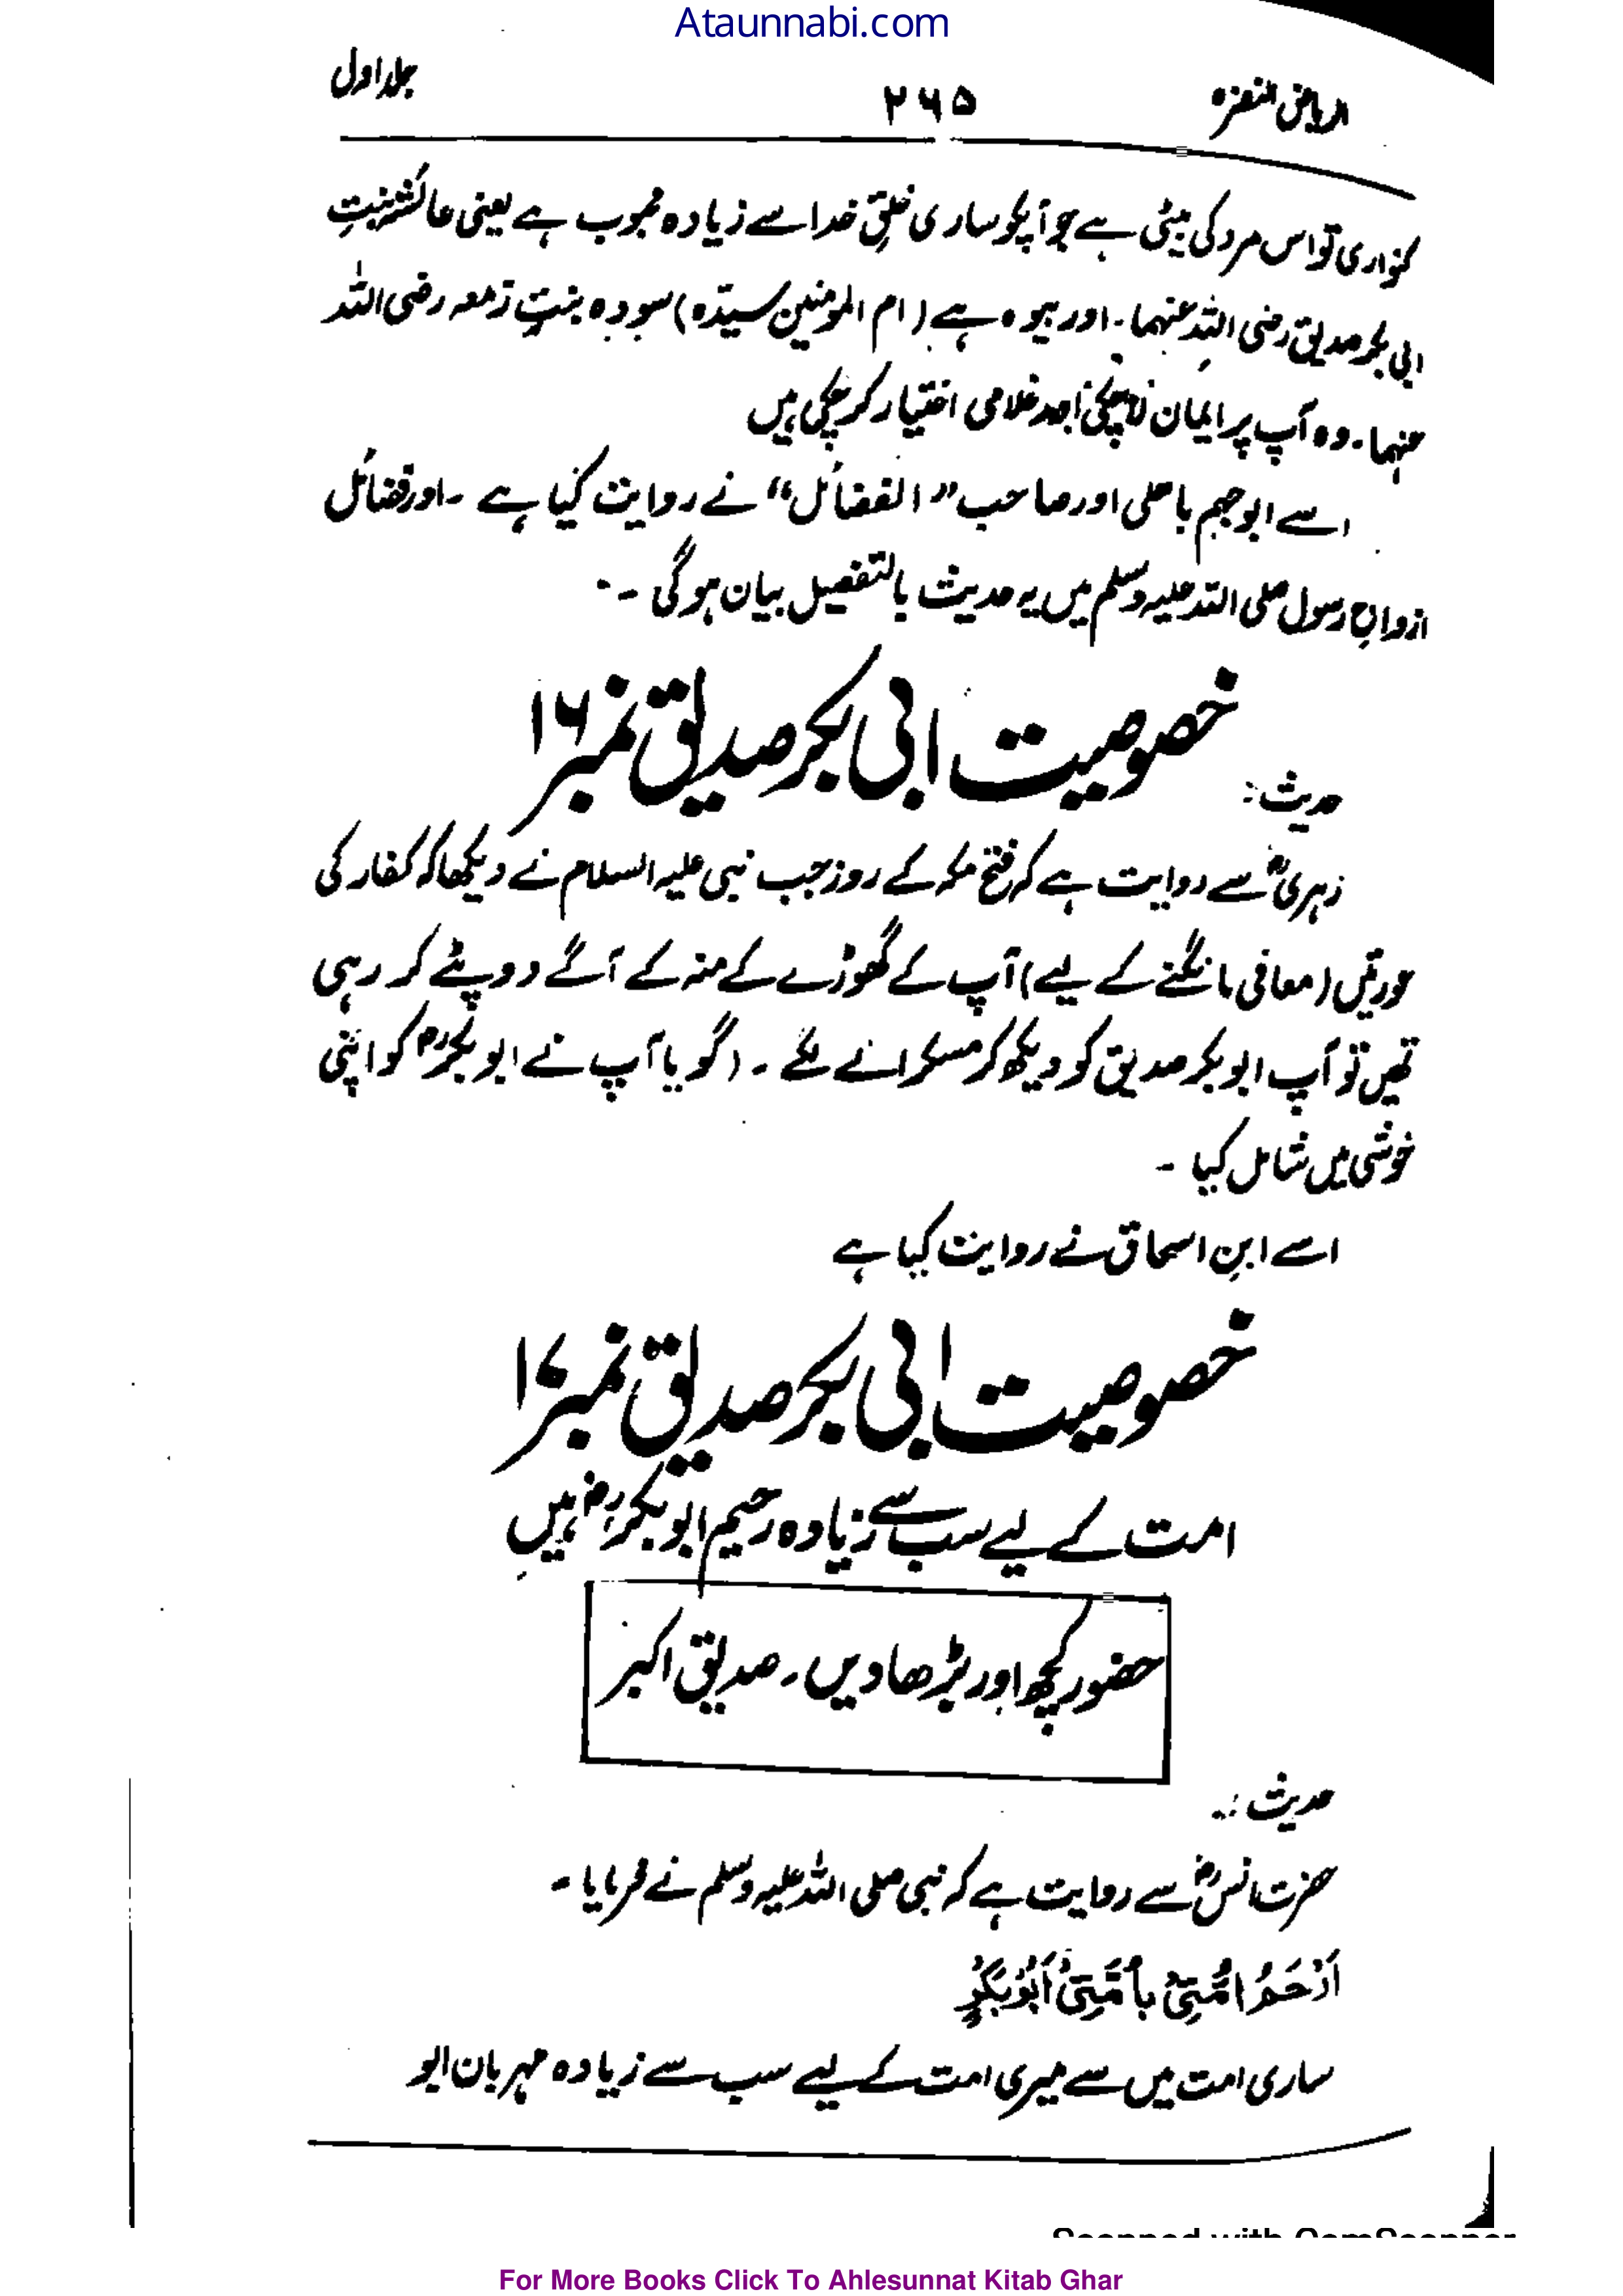 Ataunnabi.com
الریاض النضرہ ۲۶۵ جلد اول
کنواری تو اس مرد کی بیٹی ہے جو آپکو ساری خلقِ خدا سے زیادہ محبوب ہے یعنی عائشہ بنتِ
ابی بکر صدیق رضی اللہ عنہما۔ اور بیوہ ہے (ام المومنین سیدہ) سودہ بنتِ زمعہ رضی اللہ
عنہما۔ وہ آپ پر ایمان لا چکی غلامی اختیار کر چکی ہیں
اسے ابوجہم باھلی اور صاحب "الفضائل" نے روایت کیا ہے ۔ اور فضائل
ازواجِ رسول صلی اللہ علیہ وسلم میں یہ حدیث بالتفصیل بیان ہوگی ۔
خصوصیت ابی بکر صدیق نمبر ۱۶
حدیث:
زہریؓ سے روایت ہے کہ فتح مکہ کے روز جب نبی علیہ السلام نے دیکھا کہ کفار کی
عورتیں (معافی مانگنے کے لیے) آپ کے گھوڑے کے منہ کے آگے دوپٹے کر رہی
تھیں تو آپ ابوبکر صدیق کو دیکھ کر مسکرانے لگے ۔ (گویا آپ نے ابوبکرؓ کو اپنی
خوشی میں شامل کیا ۔
اسے ابنِ اسحاق نے روایت کیا ہے
خصوصیت ابی بکر صدیق نمبر ۱۷
امت کے لیے سب سے زیادہ رحیم ابوبکرؓ ہیں
حضور کچھ اور بڑھا دیں ۔ صدیق اکبر
حدیث :۔
حضرت انسؓ سے روایت ہے کہ نبی صلی اللہ علیہ وسلم نے فرمایا ۔
اَرْحَمُ اُمَّتِیْ بِاُمَّتِیْ اَبُوْبَکْرٍ
ساری امت میں سے میری امت کے لیے سب سے زیادہ مہربان ابو
Scanned with CamScanner
For More Books Click To Ahlesunnat Kitab Ghar